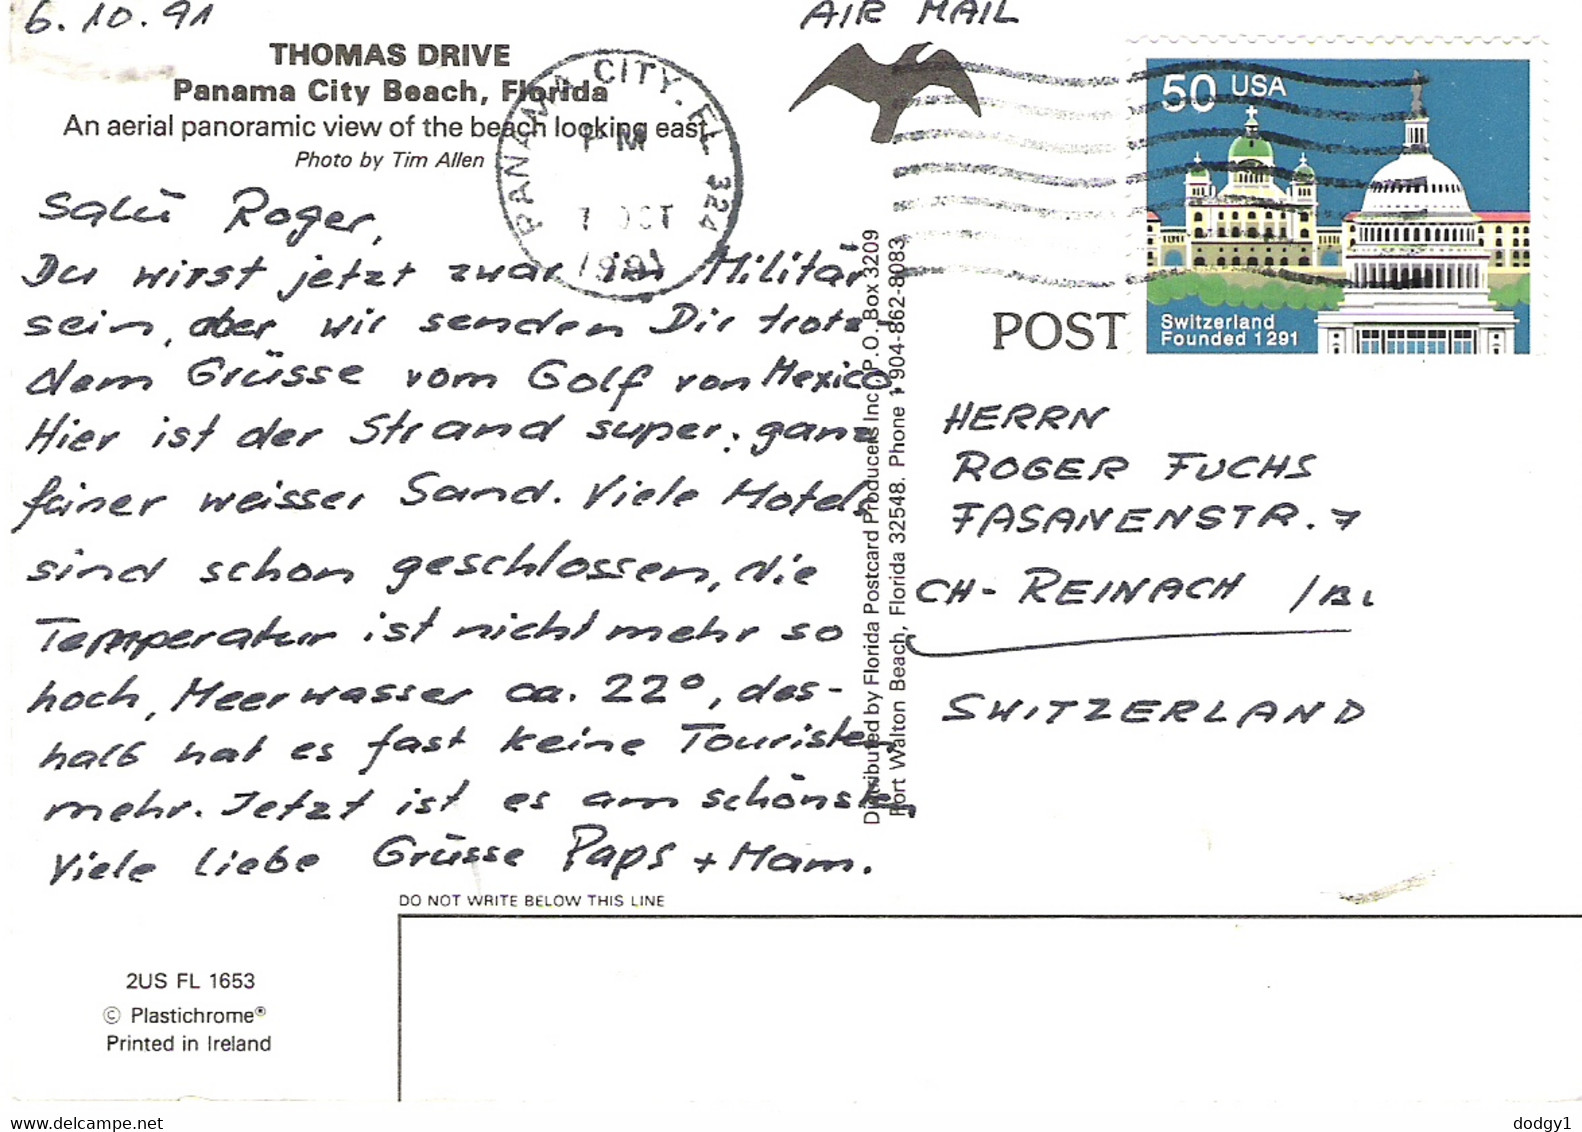 6.10.91
AIR MAIL
THOMAS DRIVE
Panama City Beach, Florida
An aerial panoramic view of the beach looking east.
Photo by Tim Allen
PANAMA CITY, FL 324
PM
7 OCT
1991
50 USA
Switzerland
Founded 1291
Salü Roger,
Du wirst jetzt zwar im Militär
sein, aber wir senden Dir trotz-
dem Grüsse vom Golf von Mexico.
Hier ist der Strand super: ganz
feiner weisser Sand. Viele Hotels
sind schon geschlossen, die
Temperatur ist nicht mehr so
hoch, Meerwasser ca. 22°, des-
halb hat es fast keine Touristen
mehr. Jetzt ist es am schönsten
Viele liebe Grüsse Paps + Mam.
Distributed by Florida Postcard Producers Inc. P.O. Box 3209
Fort Walton Beach, Florida 32548. Phone 1 904-862-8083
POST
HERRN
ROGER FUCHS
FASANENSTR. 7
CH-REINACH /BL
SWITZERLAND
DO NOT WRITE BELOW THIS LINE
2US FL 1653
© Plastichrome®
Printed in Ireland
dodgy1